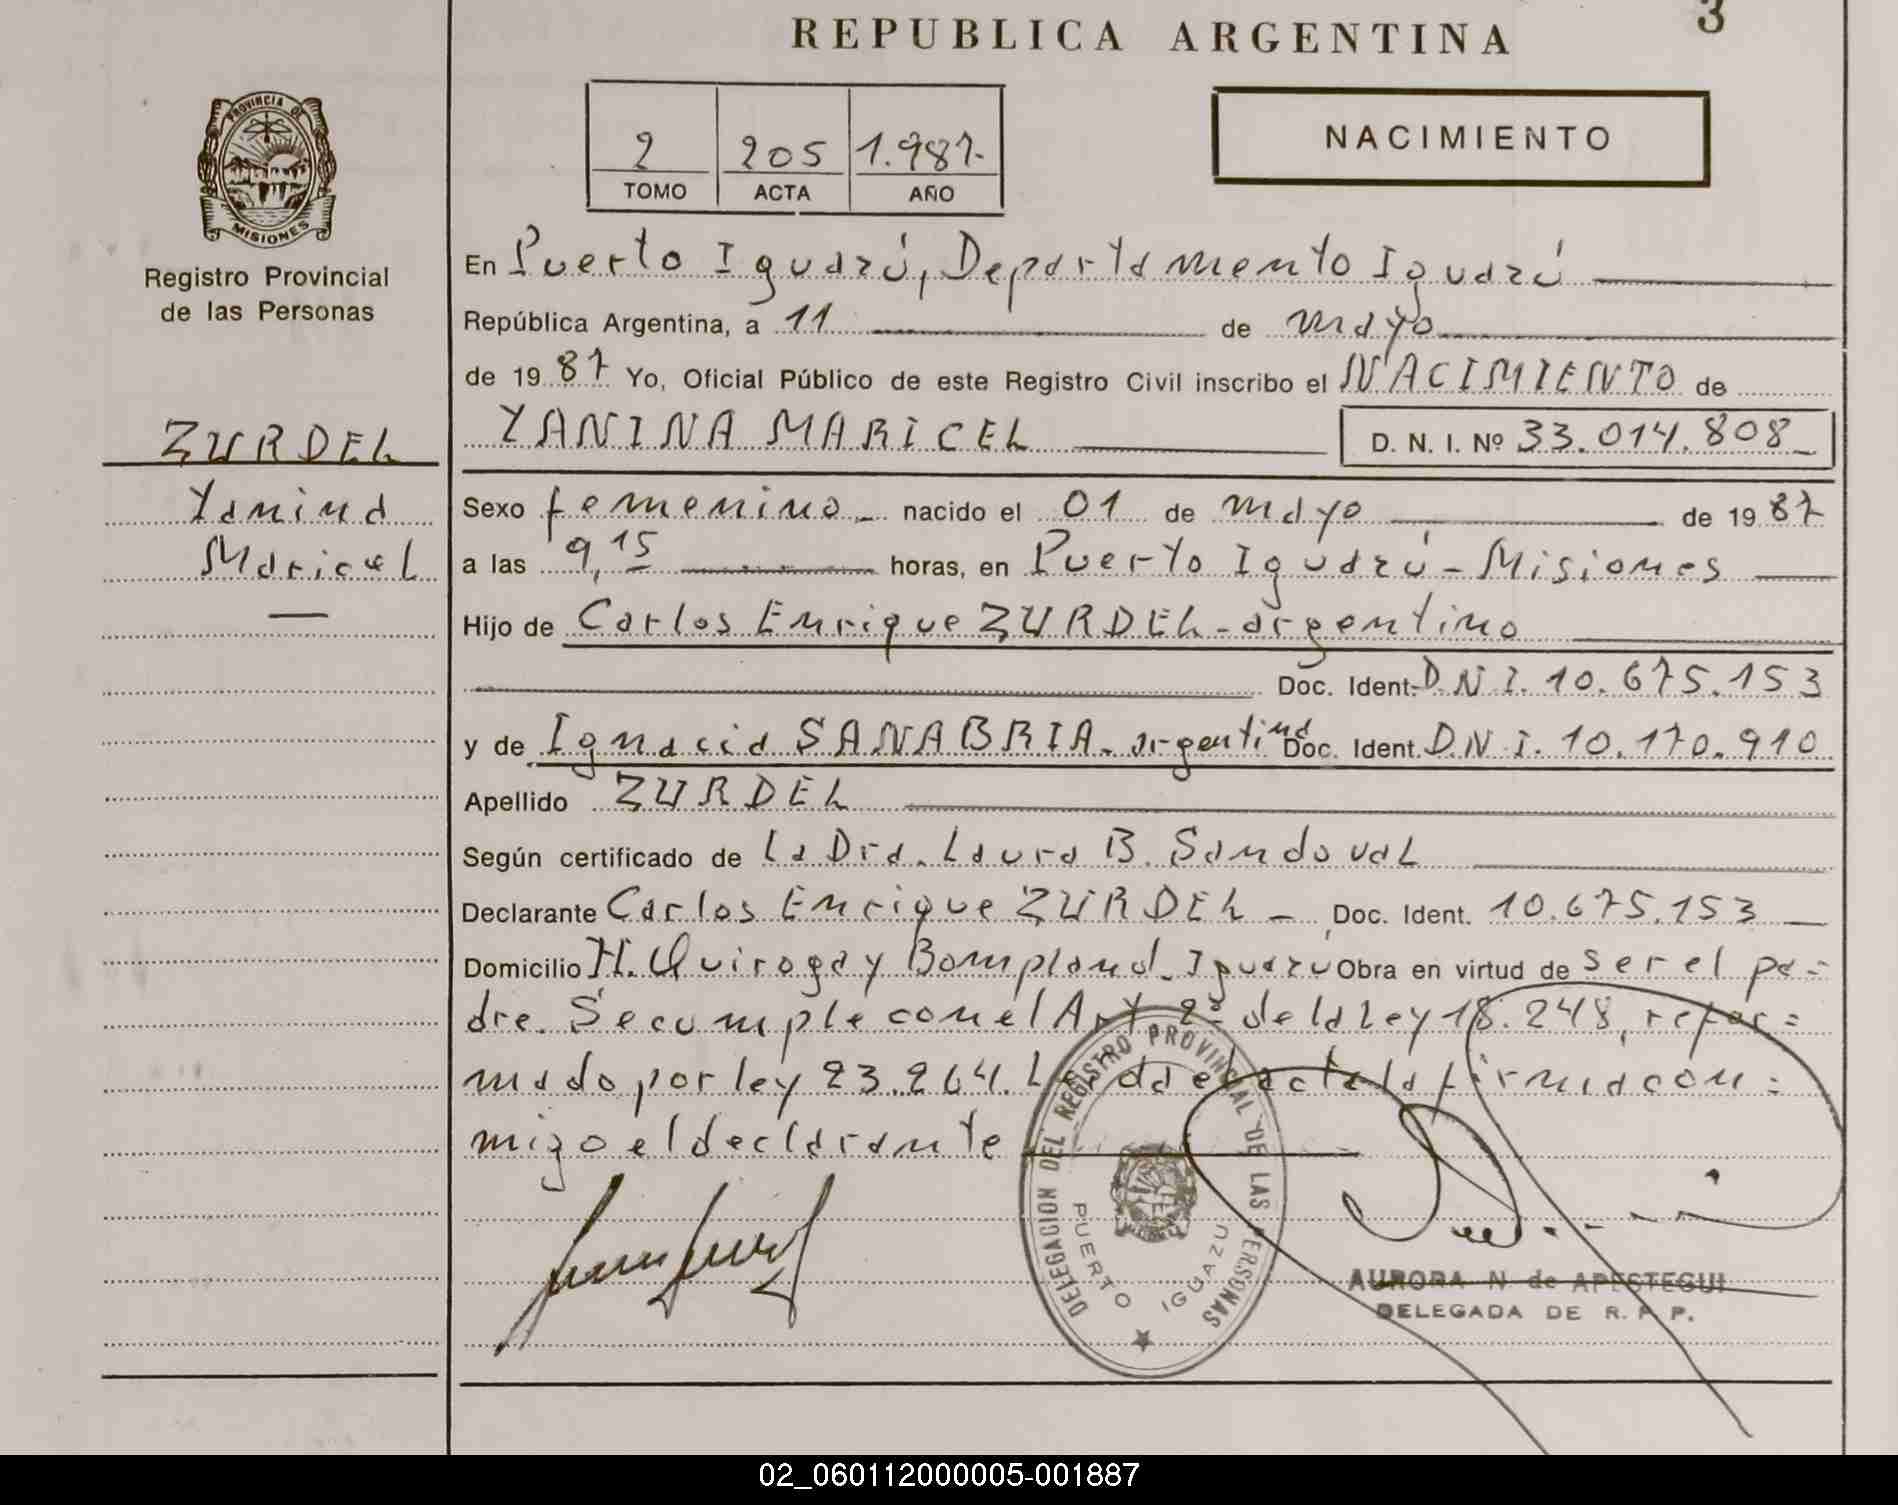 REPUBLICA ARGENTINA
3
2 205 1.987.-
TOMO ACTA AÑO
NACIMIENTO
PROVINCIA DE MISIONES
Registro Provincial
de las Personas
ZURDEL
Yanina
Maricel
En Puerto Iguazú, Departamento Iguazú
República Argentina, a 11 de mayo
de 1987 Yo, Oficial Público de este Registro Civil inscribo el NACIMIENTO de
YANINA MARICEL D. N. I. Nº 33.014.808
Sexo femenino nacido el 01 de mayo de 1987
a las 9,15 horas, en Puerto Iguazú - Misiones
Hijo de Carlos Enrique ZURDEL - argentino
Doc. Ident. D.N.I. 10.675.153
y de Ignacia SANABRIA. argentina Doc. Ident. D.N.I. 10.170.910
Apellido ZURDEL
Según certificado de La Dra. Laura B. Sandoval
Declarante Carlos Enrique ZURDEL - Doc. Ident. 10.675.153
Domicilio H. Quiroga y Bompland. Iguazú Obra en virtud de ser el pa=
dre. Se cumple con el Art 2º de la Ley 18.248, refor=
mado por ley 23.264. Leída el acta la firma con=
migo el declarante
DELEGACION DEL REGISTRO PROVINCIAL DE LAS PERSONAS
PUERTO IGUAZU
AURORA N. de APESTEGUI
DELEGADA DE R. P. P.
02_060112000005-001887